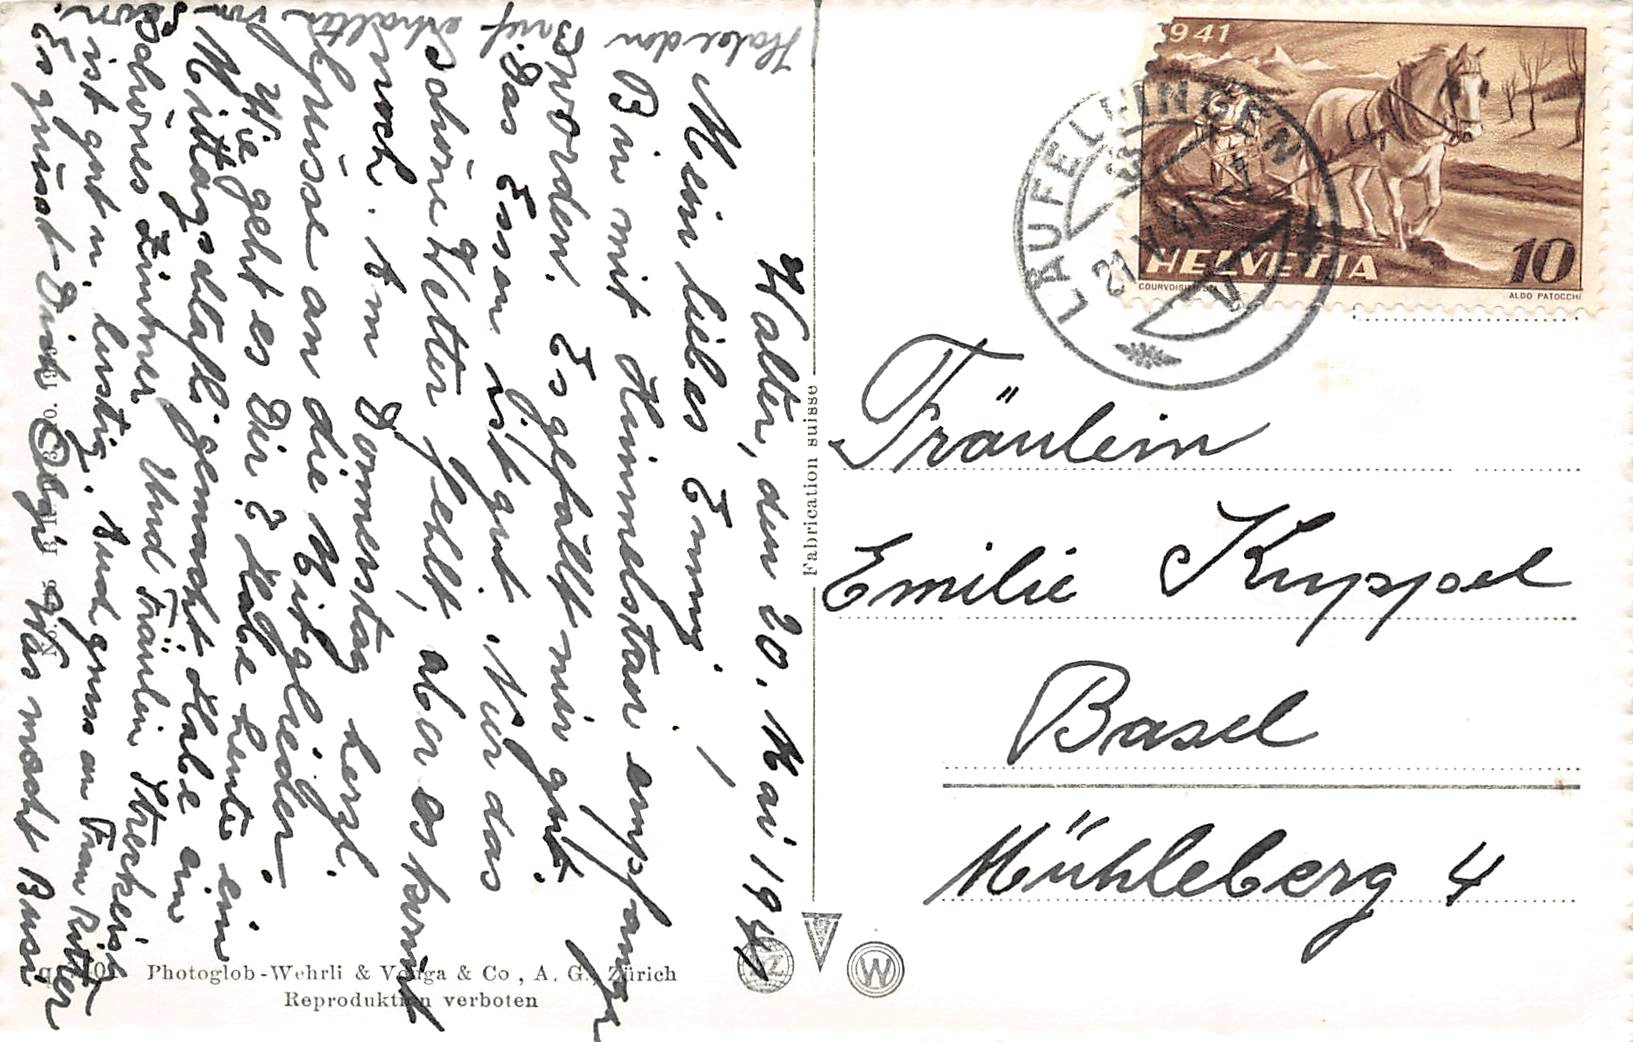 Walten, den 20. Mai 1941
Mein liebes Emmy,
Bin mit Himmelstau empfangen
worden. Es gefällt mir gut.
Das Essen ist gut. Nur das
schöne Wetter fehlt, aber es kommt
noch. Am Donnerstag herzl.
Grüsse an die Mitglieder.
Wie geht es Dir? Habe heute ein
Mittagschläfli gemacht. Habe ein
schönes Zimmer. Und Fräulein
ist gut u. lustig. Auch gruss an Frau Ritter
Es grüsst Dich Was macht Busi
Habe den
Brief erhalten
von
1941
HELVETIA
10
COURVOISIER
ALDO PATOCCHI
LÄUFELFINGEN
21.V.41
Fräulein
Emilie Kuppel
Basel
Mühleberg 4
Fabrication suisse
Photoglob-Wehrli & Vouga & Co, A. G., Zürich
Reproduktion verboten
W